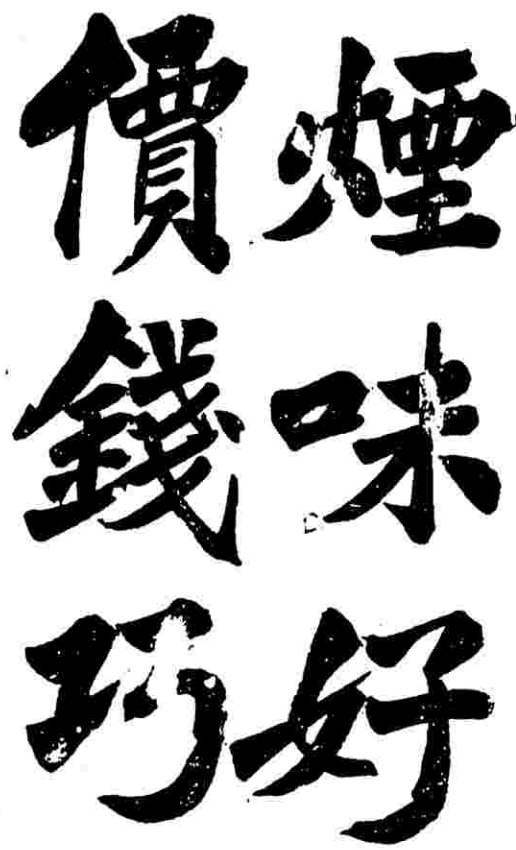 煙味好
價錢巧